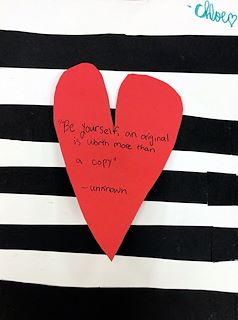 -Chloe♡
"Be yourself; an original
is worth more than
a copy"
-unknown